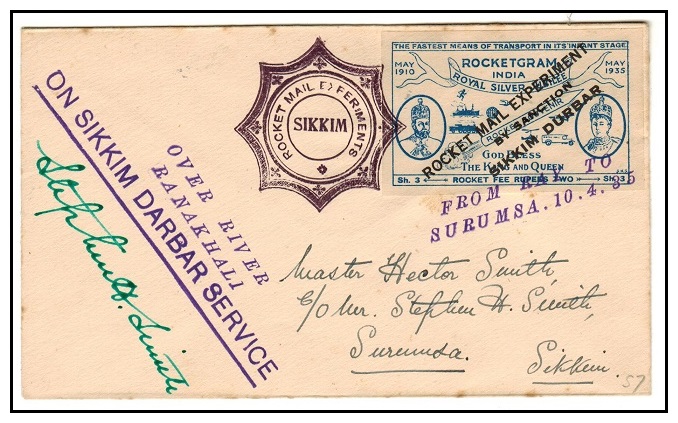 ON SIKKIM DARBAR SERVICE
OVER RIVER
RANAKHALI
Stephen H. Smith
ROCKET MAIL EXPERIMENTS
SIKKIM
THE FASTEST MEANS OF TRANSPORT IN ITS INFANT STAGE
MAY 1910
ROCKETGRAM
INDIA
MAY 1935
ROYAL SILVER JUBILEE
ROCKET MAIL EXPERIMENT
BY SANCTION
SIKKIM DURBAR
GOD BLESS
THE KING AND QUEEN
Sh. 3
ROCKET FEE RUPEES TWO
Sh. 3
FROM RAY TO
SURUMSA. 10.4.35
Master Hector Smith
c/o Mr. Stephen H. Smith,
Surumsa.
Sikkim.
57